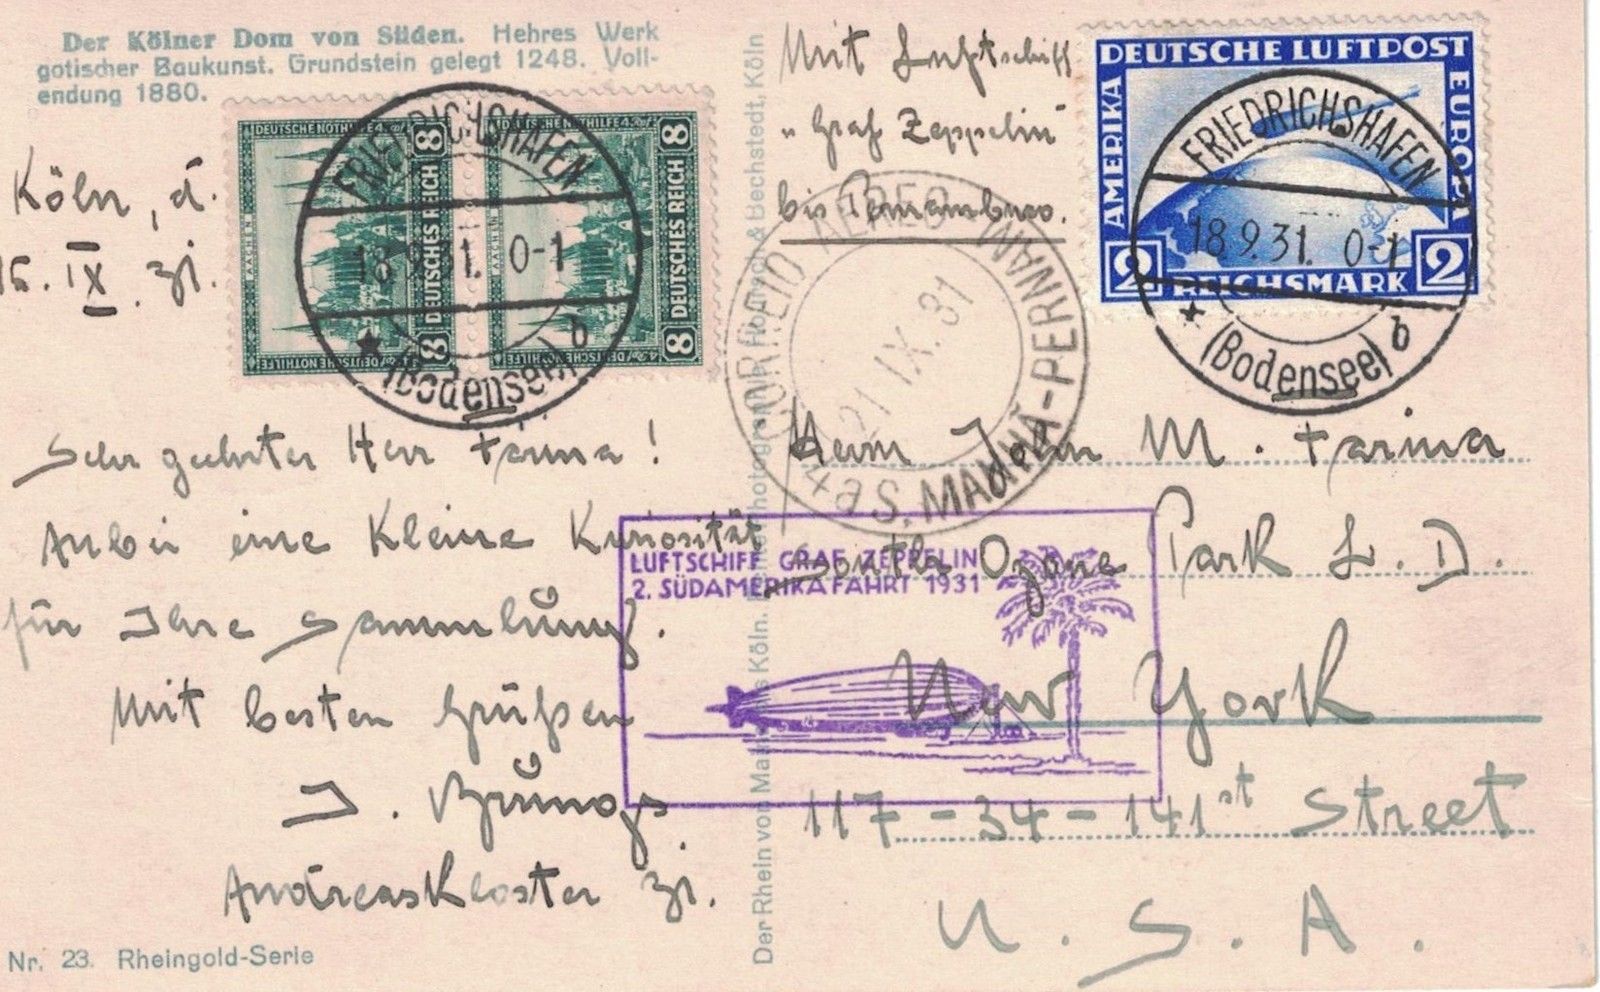 Der Kölner Dom von Süden. Hehres Werk
gotischer Baukunst. Grundstein gelegt 1248. Voll-
endung 1880.
Köln, d.
15. IX. 31.
DEUTSCHE NOTHILFE
AACHEN
DEUTSCHES REICH
8
8
DEUTSCHE NOTHILFE
DEUTSCHE NOTHILFE
AACHEN
DEUTSCHES REICH
8
8
DEUTSCHE NOTHILFE
FRIEDRICHSHAFEN
18.9.31. 0-1
(Bodensee) b
Mit Luftschiff
"Graf Zeppelin"
bis Pernambuco.
DEUTSCHE LUFTPOST
AMERIKA
EUROPA
2 REICHSMARK 2
FRIEDRICHSHAFEN
18.9.31. 0-1
(Bodensee) b
CORREIO AEREO
21 IX. 31
Sehr geehrter Herr Farina!
Anbei eine kleine Kuriosität
für Ihre Sammlung.
Mit besten Grüßen
J.
Andreaskloster 31.
Nr. 23. Rheingold-Serie
Der Rhein von Mainz bis Köln.
& Bechstedt, Köln
LUFTSCHIFF GRAF ZEPPELIN
2. SÜDAMERIKAFAHRT 1931
Herrn John M. Farina
South Ozone Park L. I.
New York
117-34-141st Street
U. S. A.